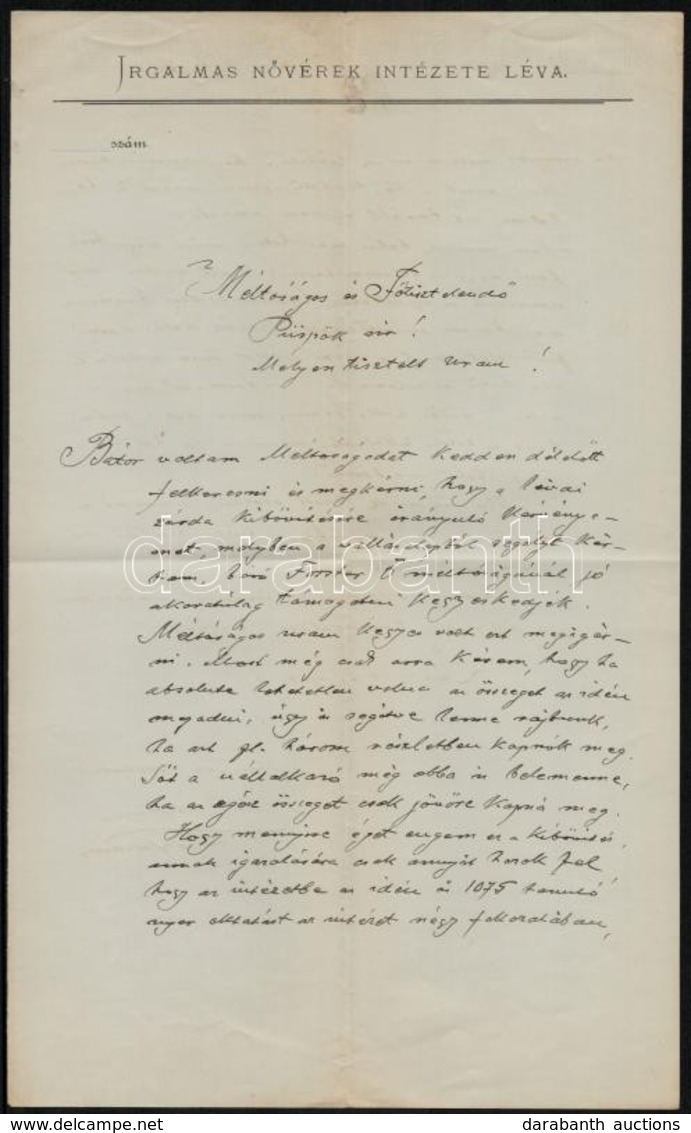 IRGALMAS NŐVÉREK INTÉZETE LÉVA.
szám
Méltóságos és Főtisztelendő
Püspök úr!
Mélyen tisztelt Uram!
Bátor voltam Méltóságodat Kedden délelőtt
felkeresni és megkérni, hogy a lévai
zárda kibővítésére irányuló Kérvénye-
met, melyben a vallásalapból segélyt kér-
tem, báró Forster Ő méltóságánál jó
akaratúlag támogatni Kegyeskedjék.
Méltóságos uram Kegyes volt ezt megigér-
ni. Most még csak arra Kérem, hogy ha
absolute lehetetlen volna az összeget az idén
megadni, úgy is segítve lenne rajtunk,
ha azt pl. három részletben kapnók meg.
Sőt a vállalkozó még abba is belemenne,
ha az egész összeget csak jövőre Kapná meg.
Hogy mennyire éget engem ez a Kibővítés,
annak igazolására csak annyit hozok fel,
hogy az intézetbe az idén is 1075 tanuló
nyer oktatást az intézet négy felkozatában,
darabanth
darabanth auctions
delcampe.net